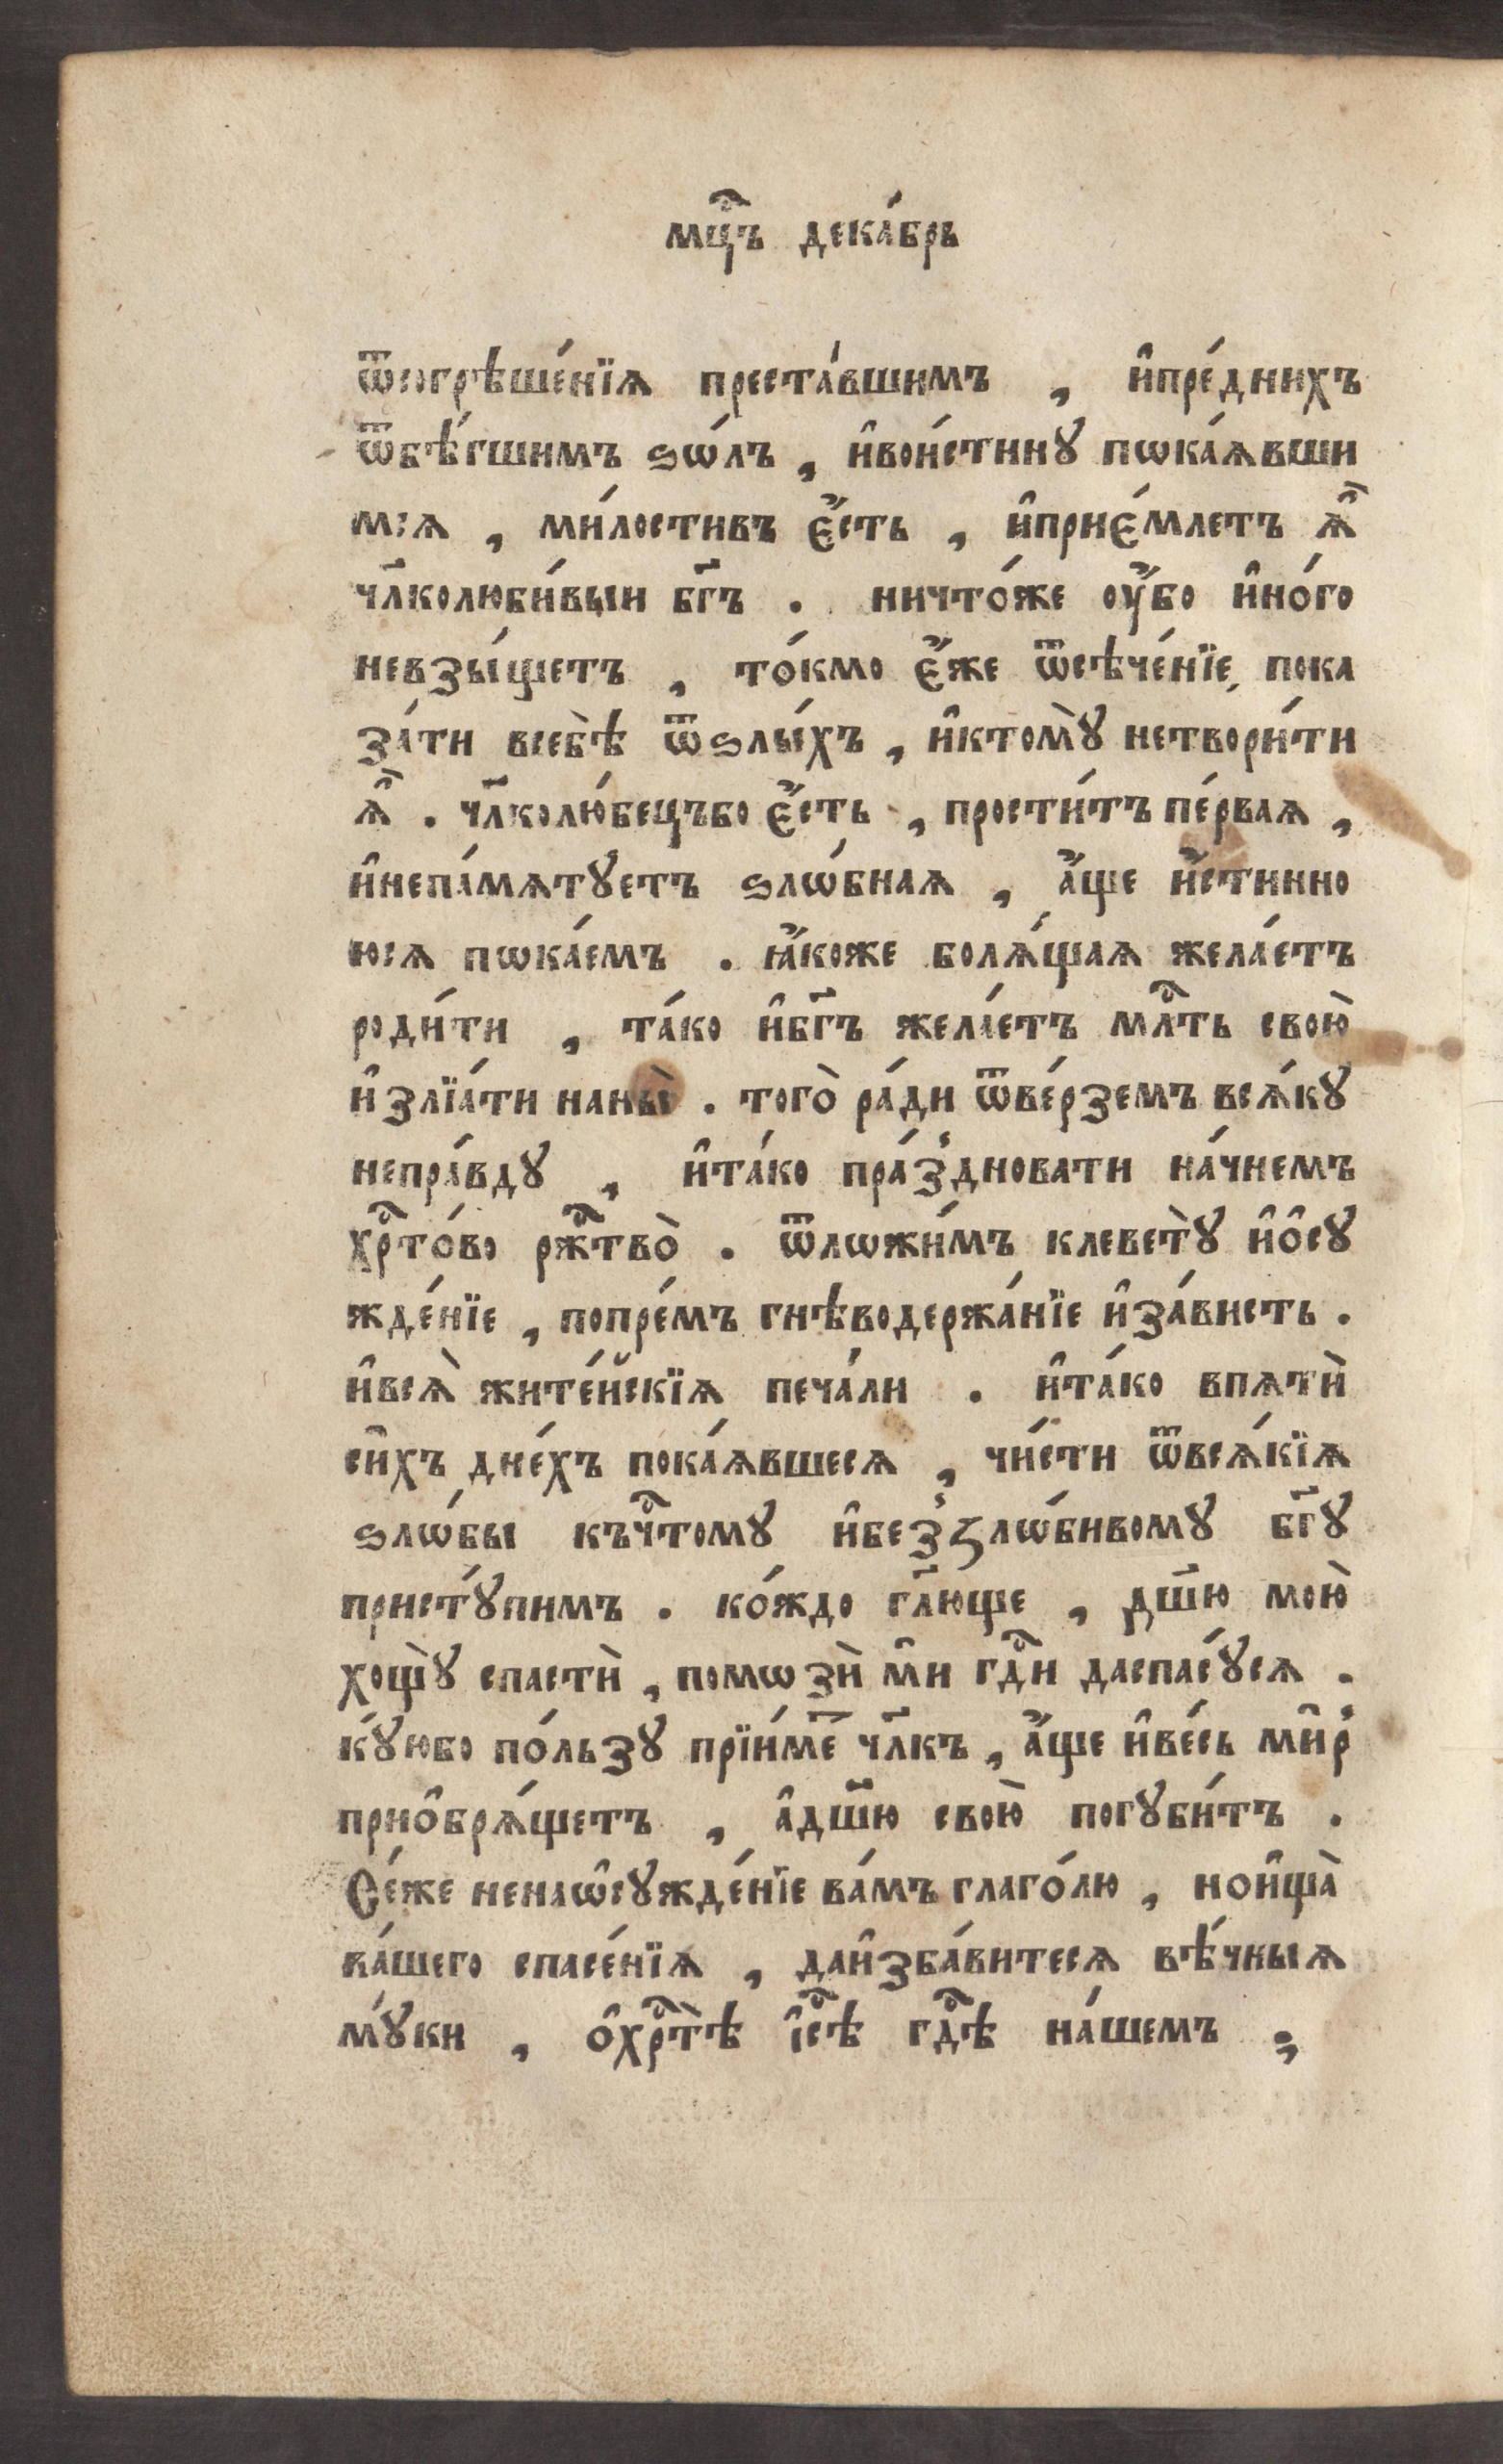 мцⷭ҇ъ дека́брь
ѿсогрѣше́нїѧ преста́вшимъ , и҆пре́днихъ
ѿбѣ́гшимъ ѕѡ́лъ , и҆вои́стинꙋ пѡка́ѧвши
мсѧ , ми́лостивъ є҆́сть , и҆прие́млетъ ѧ҆̀
чл҃колюби́выи бг҃ъ . ничто́же оу҆́бо и҆но́го
невзы́щетъ , то́кмо є҆́же ѿсѣче́нїе, пока
за́ти всебѣ̀ ѿѕлы́хъ , и҆ктомꙋ̀ нетвори́ти
ѧ҆̀ . чл҃колю́бецъбо є҆́сть , прости́тъ пе́рваѧ ,
и҆непа́мѧтꙋетъ ѕлѡ́бнаѧ , а҆́ще и҆́стинно
юсѧ пѡка́емъ . ꙗ҆́коже болѧ́щаѧ жела́етъ
роди́ти , та́ко и҆бг҃ъ жела́етъ млⷭ҇ть свою̀
и҆злїа́ти наны̀ . того̀ ра́ди ѿве́рземъ всѧ́кꙋ
непра́вдꙋ , и҆та́ко пра́здновати на́чнемъ
хрⷭ҇то́во ржⷭ҇тво̀ . ѿлѡжи́мъ клеветꙋ̀ и҆ѻ҆сꙋ
жде́нїе , попре́мъ гнѣводержа́нїе и҆за́висть .
и҆всѧ̀ жите́йскїѧ печа́ли . и҆та́ко впѧтѝ
си́хъ дне́хъ пока́ѧвшеесѧ , чи́сти ѿвсѧ́кїѧ
ѕлѡ́бы къчⷭ҇томꙋ и҆безꙁлѡ́бивомꙋ бг҃ꙋ
пристꙋ́пимъ . ко́ждо гл҃юще , дш҃ю мою̀
хощꙋ̀ спастѝ , помѡзѝ мѝ гдⷭ҇и даспасꙋ́сѧ .
кꙋ́юбо по́льзꙋ прїи́ме҃ чл҃къ , а҆́ще и҆ве́сь ми́р̾
приѻ҆брѧ́щетъ , а҆дш҃ю свою̀ погꙋби́тъ .
Се́же ненаѡ҆сꙋжде́нїе ва́мъ глаго́лю , нои҆ща̀
ва́шего спасе́нїѧ , даи҆зба́витесѧ вѣ́чныѧ
мꙋ́ки , ѻ҆хрⷭ҇тѣ̀ і҆сⷭ҇ѣ гдⷭ҇ѣ на́шемъ ;